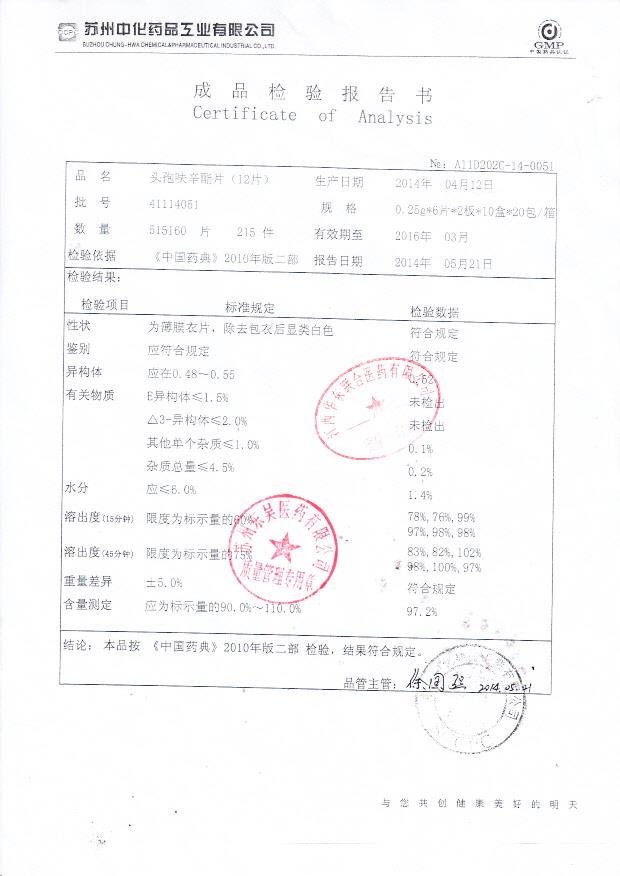 CCPC 苏州中化药品工业有限公司
SUZHOU CHUNG-HWA CHEMICAL&PHARMACEUTICAL INDUSTRIAL CO.,LTD.
GMP
中国药品认证
成品检验报告书
Certificate of Analysis
№: A11D202C-14-0051
品 名 头孢呋辛酯片（12片） 生产日期 2014年 04月12日
批 号 41114051 规 格 0.25g*6片*2板*10盒*20包/箱
数 量 515160 片 215 件 有效期至 2016年 03月
检验依据 《中国药典》2010年版二部 报告日期 2014年 05月21日
检验结果:
检验项目 标准规定 检验数据
性状 为薄膜衣片，除去包衣后显类白色 符合规定
鉴别 应符合规定 符合规定
异构体 应在0.48～0.55 0.52
有关物质 E异构体≤1.5% 未检出
△3-异构体≤2.0% 未检出
其他单个杂质≤1.0% 0.1%
杂质总量≤4.5% 0.2%
水分 应≤6.0% 1.4%
溶出度(15分钟) 限度为标示量的60% 78%,76%,99%
97%,98%,98%
溶出度(45分钟) 限度为标示量的75% 83%,82%,102%
98%,100%,97%
重量差异 ±5.0% 符合规定
含量测定 应为标示量的90.0%～110.0% 97.2%
江西华东联合医药有限公司
苏州东吴医药有限公司
质量管理专用章
结论: 本品按 《中国药典》2010年版二部 检验，结果符合规定。
品管主管: 徐国强 2014.05.21
与您共创健康美好的明天